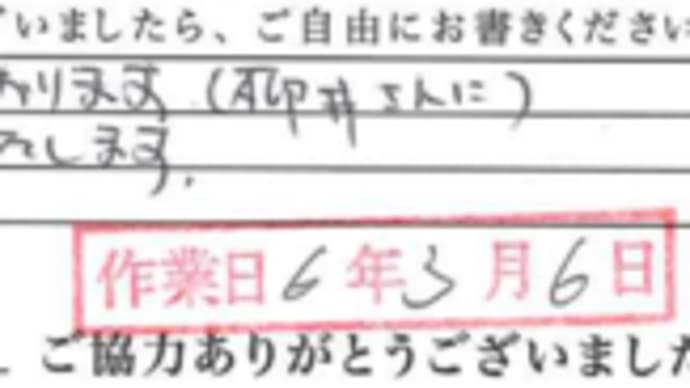 いましたら、ご自由にお書きください
おります（柳井さんに）
たします。
作業日6年3月6日
ご協力ありがとうございました